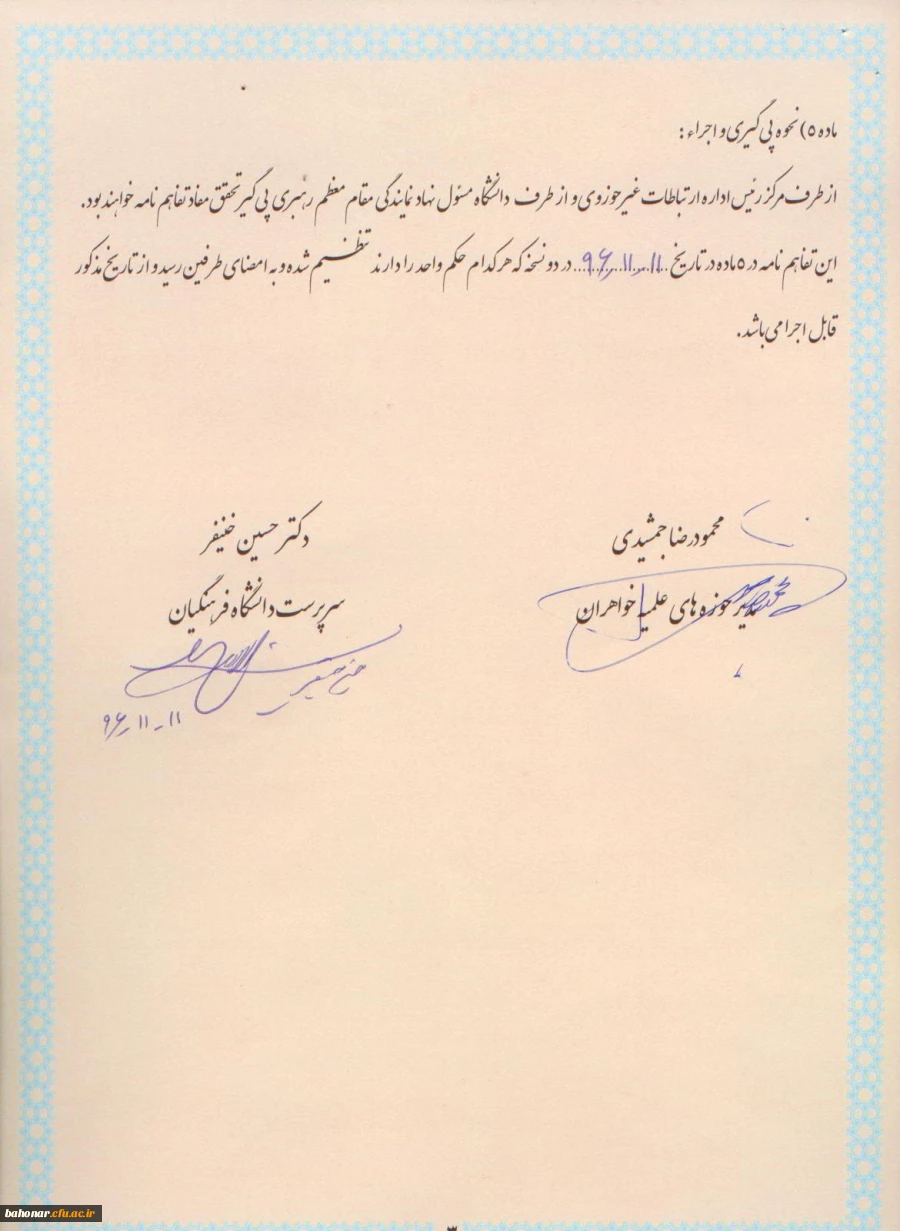 ماده ۵) نحوه پی گیری و اجراء :
از طرف مرکز رئیس اداره ارتباطات غیر حوزوی و از طرف دانشگاه مسئول نهاد نمایندگی مقام معظم رهبری پی گیر تحقق مفاد تفاهم نامه خواهند بود.
این تفاهم نامه در ۵ ماده در تاریخ ...۹۶/۱۱/۱۱... در دو نسخه که هر کدام حکم واحد را دارند تنظیم شده و به امضای طرفین رسید و از تاریخ مذکور
قابل اجرا می باشد.
محمودرضا جمشیدی
مدیر حوزه های علمیه خواهران
دکتر حسین خنیفر
سرپرست دانشگاه فرهنگیان
۹۶-۱۱-۱۱
bahonar.cfu.ac.ir
۳